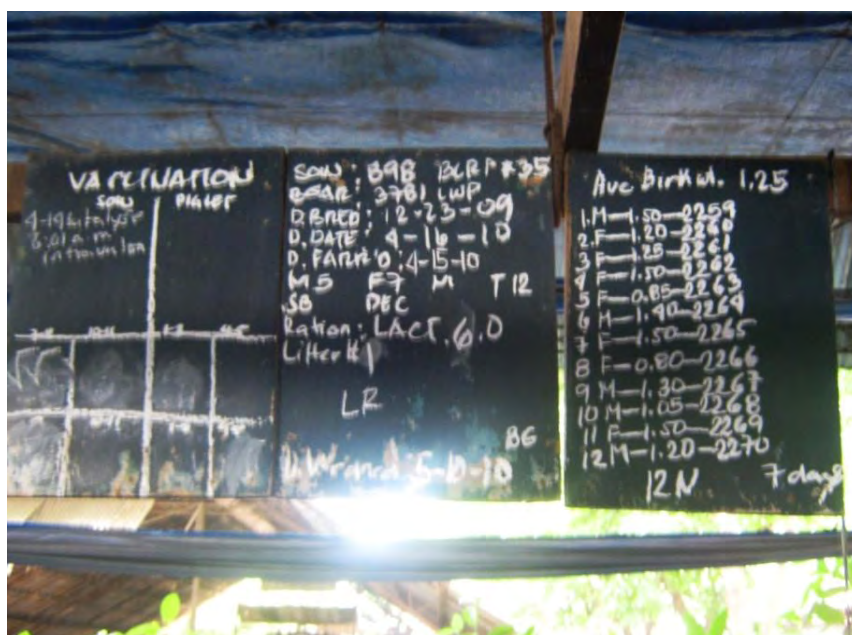 VACCINATION
SOW PIGLET
SOW: B98 BLRP #35
BOAR: 3781 LWP
D. BRED: 12-23-09
D. DATE: 4-16-10
D. FARR'D: 4-15-10
M5 F7 M T12
SB DEC
Ration: LACT. 6.0
Litter# 1
LR
BG
D. Weaned: 5-10-10
Ave Birth wt. 1.25
1. M-1.50-2259
2. F-1.20-2260
3 F-1.25-2261
4 F-1.50-2262
5 F-0.85-2263
6 M-1.40-2264
7 F-1.50-2265
8 F-0.80-2266
9 M-1.30-2267
10 M-1.05-2268
11 F-1.50-2269
12 M-1.20-2270
12N 7 days